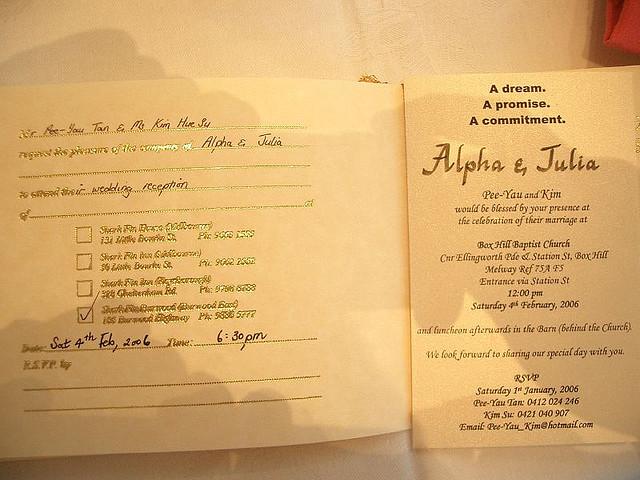 Mr Pee-Yau Tan & Ms Kim Hue Su
request the pleasure of the company of Alpha & Julia
to attend their wedding reception
of at
Shark Fin House (Melbourne)
131 Little Bourke St. Ph: 9663 1555
Shark Fin Inn (Melbourne)
50 Little Bourke St. Ph: 9662 2552
Shark Fin Inn (Keysborough)
Cheltenham Rd.
Shark Fin Burwood (Burwood East)
Burwood Highway
Date: Sat 4th Feb, 2006 Time: 6:30pm
R.S.V.P. by
A dream.
A promise.
A commitment.
Alpha & Julia
Pee-Yau and Kim
would be blessed by your presence at
the celebration of their marriage at
Box Hill Baptist Church
Cnr Ellingworth Pde & Station St, Box Hill
Melway Ref 75A F5
Entrance via Station St
12:00 pm
Saturday 4th February, 2006
and luncheon afterwards in the Barn (behind the Church).
We look forward to sharing our special day with you.
RSVP
Saturday 1st January, 2006
Pee-Yau Tan: 0412 024 246
Kim Su: 0421 040 907
Email: Pee-Yau_Kim@hotmail.com